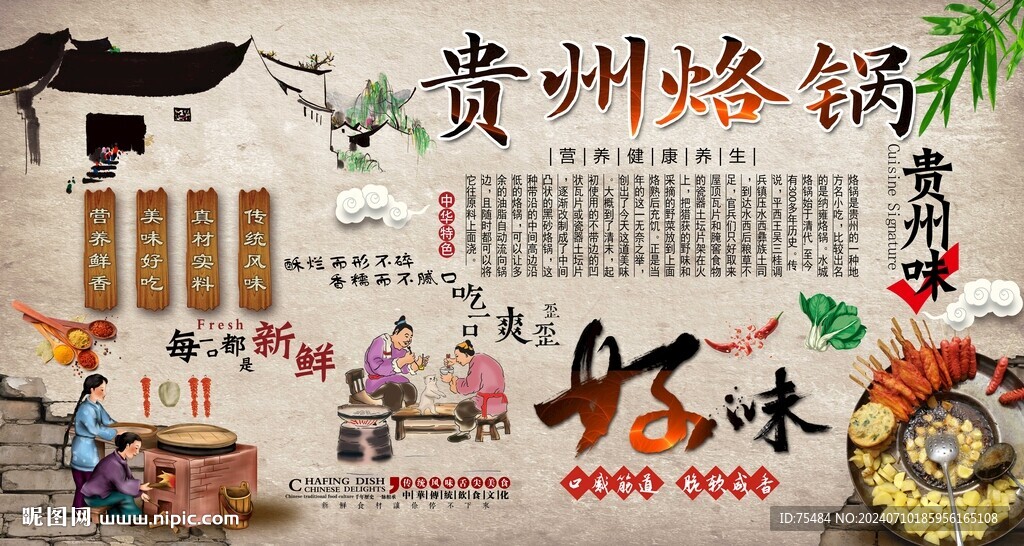 贵州烙锅
|营|养|健|康|养|生|
贵州味
Cuisine Signature
烙锅是贵州的一种地
方名小吃，比较出名
的是纳雍烙锅。水城
烙锅始于清代，至今
有300多年历史。传
说，平西王吴三桂调
兵镇压水西彝族土司
，到达水西后粮草不
足，官兵们只好取来
屋顶瓦片和腌窖食物
的瓷器土坛片架在火
上，把猎获的野味和
采摘的野菜放到上面
烙熟后充饥。正是当
年的这一无奈之举，
创出了今天这道美味
。大概到了清末，起
初使用的不带边的凹
状瓦片或瓷器土坛片
，逐渐改制成了中间
凸状的黑砂烙锅，这
种带沿的中间高边沿
低的烙锅，可以让多
余的油脂自动流向锅
边，且随时都可以将
它往原料上面浇。
中华特色
传统风味
真材实料
美味好吃
营养鲜香
酥烂而形不碎
香糯而不腻口
吃一口爽歪歪
Fresh
每一口都是新鲜
好味
口感筋道 脆软咸香
CHAFING DISH
CHINESE DELIGHTS
Chinese traditional food culture
传统风味舌尖美食
中華傳統飲食文化
新鲜食材让你停不下来
昵图网 www.nipic.com
ID:75484 NO:20240710185956165108